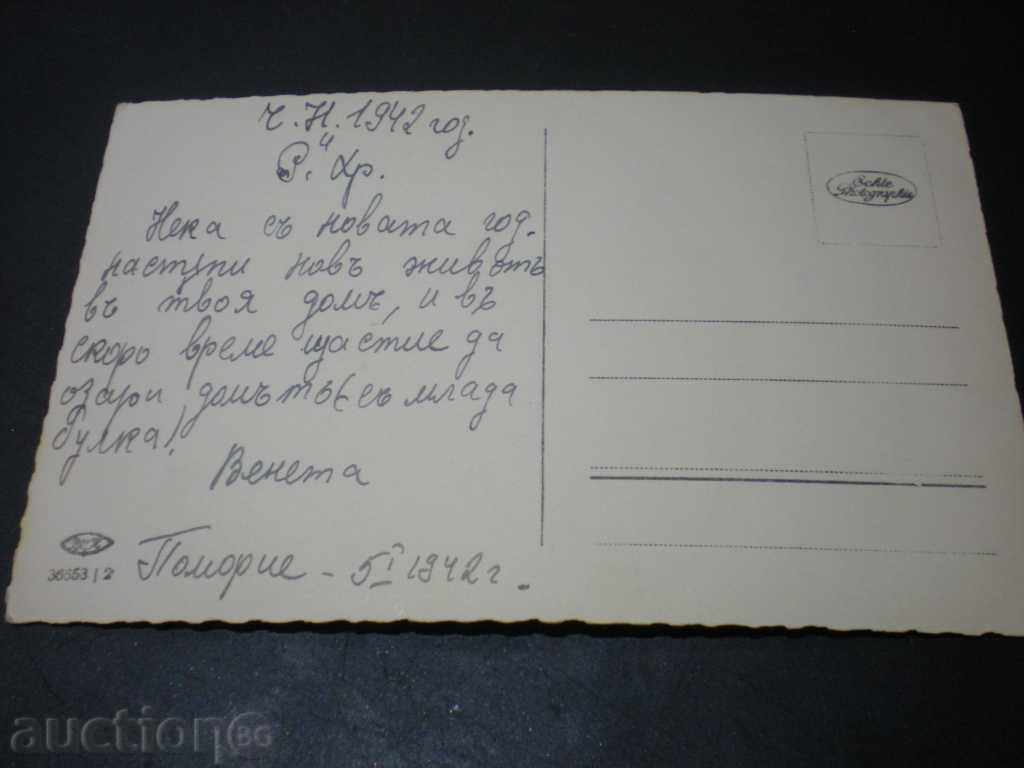 Ч. Н. 1942 год.
и
Р. Хр.
Нека съ новата год.
настѫпи новъ животъ
въ твоя домъ, и въ
скоро време щастие да
озари домътъ съ млада
булка!
Венета
Поморие - 5 I 1942 г.
36653/2
Echte
Photographie
auction BG